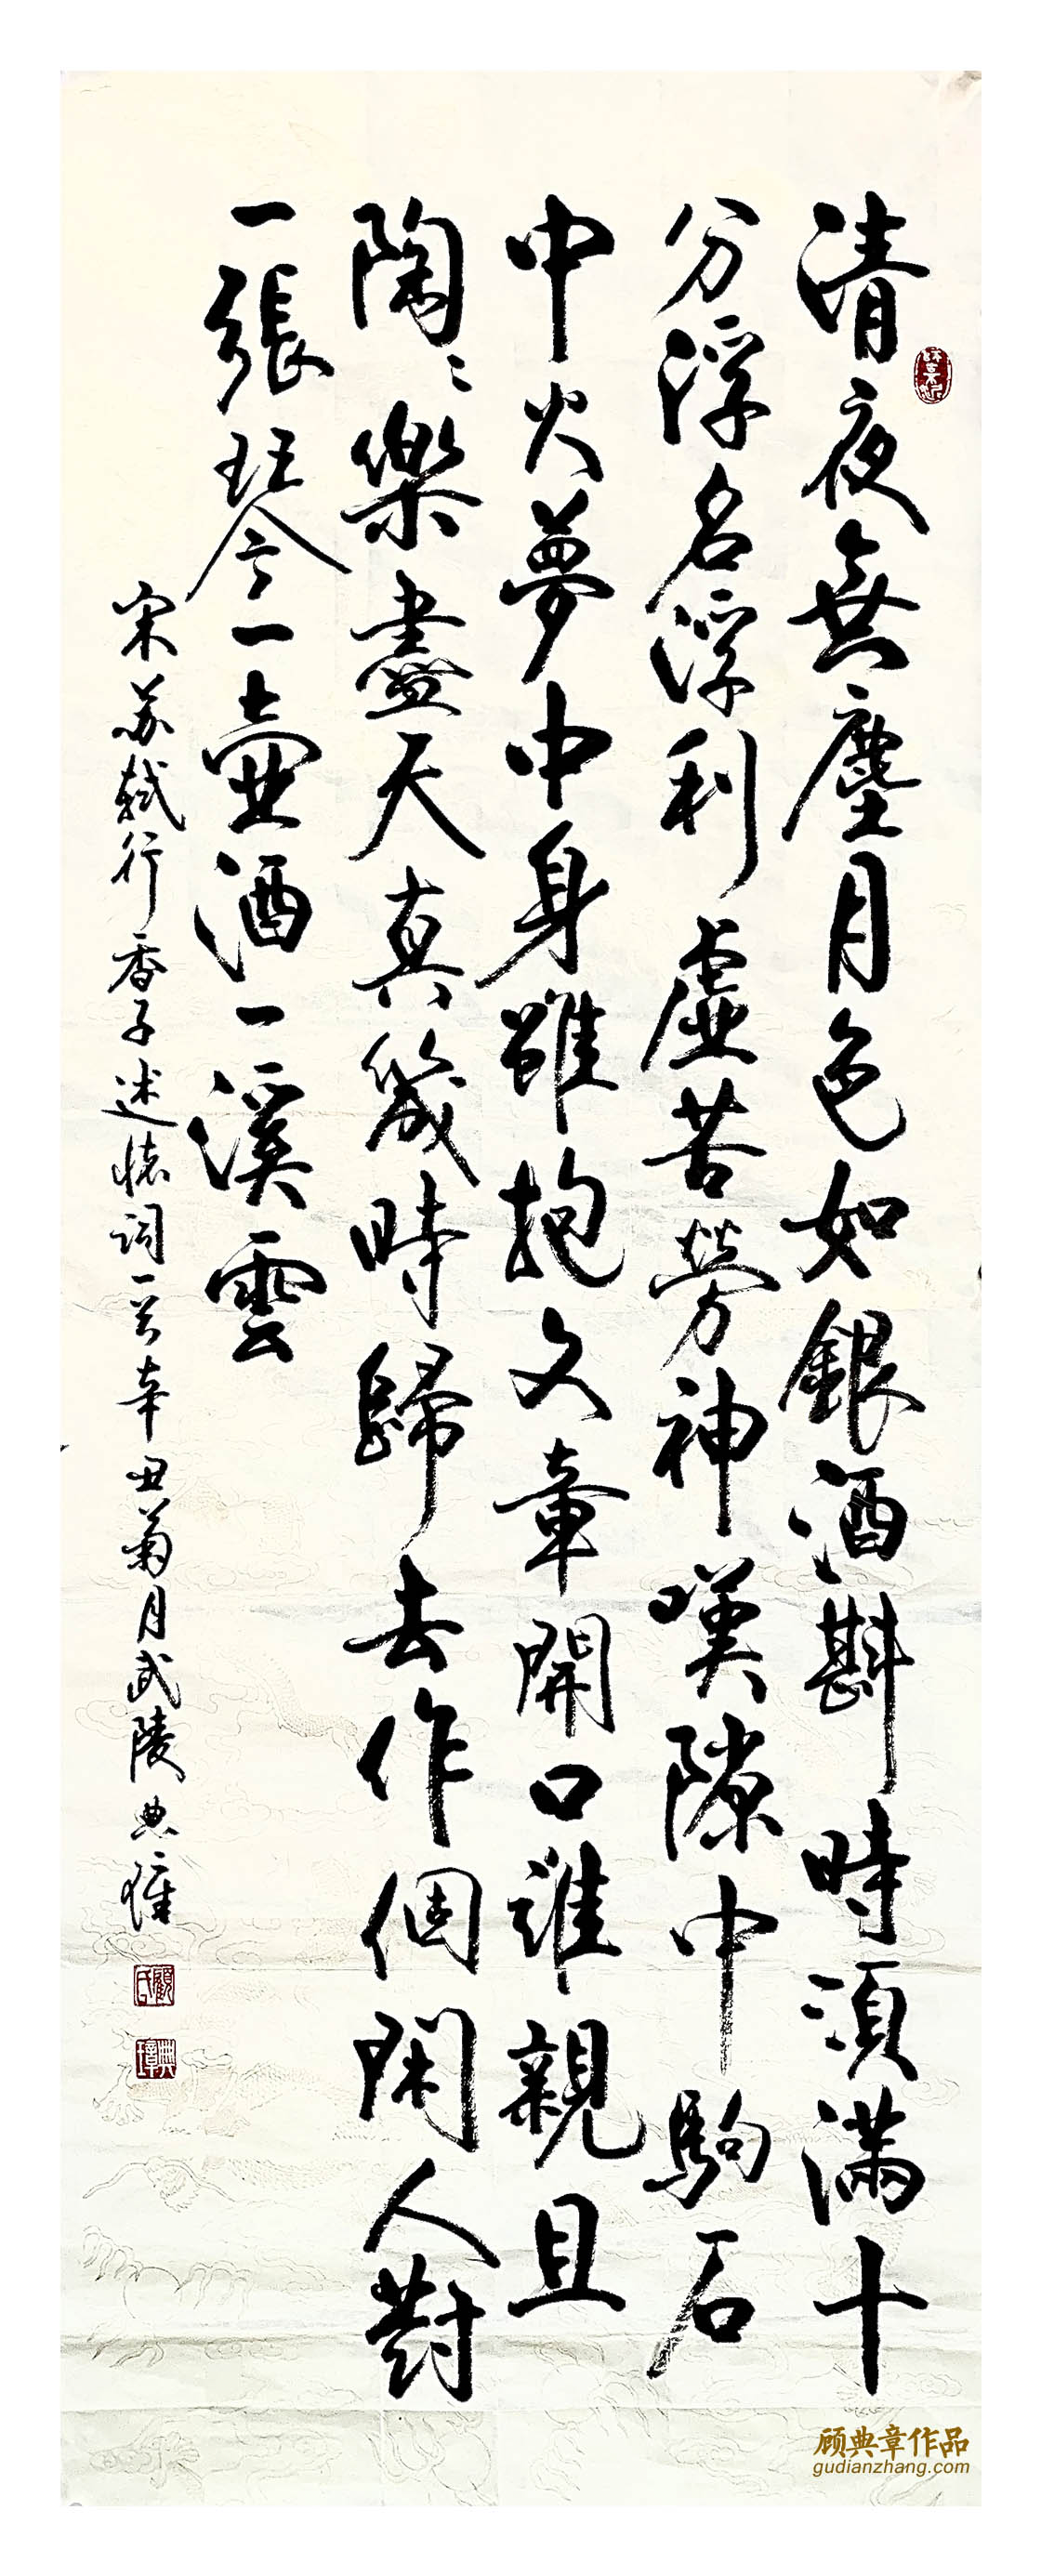 清夜無塵月色如銀酒斟時須滿十
分浮名浮利虛苦勞神嘆隙中駒石
中火夢中身雖抱文章開口誰親且
陶〻樂盡天真幾時歸去作個閑人對
一張琴一壺酒一溪雲
宋苏軾行香子述懷詞一首辛丑菊月武陵典
顧氏
典璋
顾典章作品
gudianzhang.com